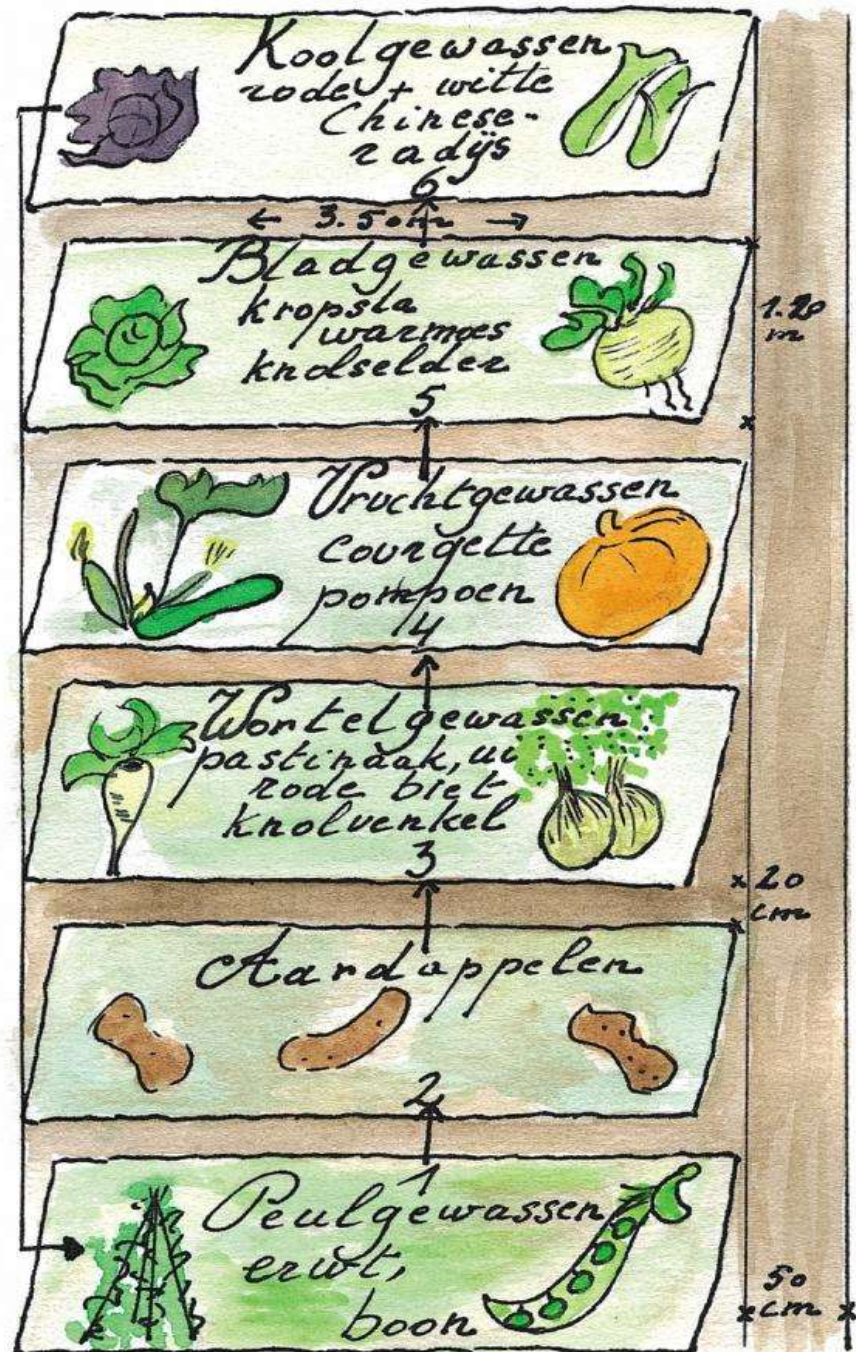 Koolgewassen
rode + witte
Chinese-
radijs
6
← 3.50m →
Bladgewassen
kropsla
warmoes
knolselder
5
1.20
m
Vruchtgewassen
courgette
pompoen
4
Wortelgewassen
pastinaak, ui
rode biet
knolvenkel
3
20
cm
Aardappelen
2
1
Peulgewassen
erwt,
boon
50
cm